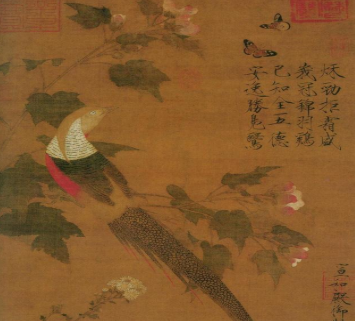 秋勁拒霜盛
峩冠錦羽雞
已知全五德
安逸勝鳧鷖
宣和殿御